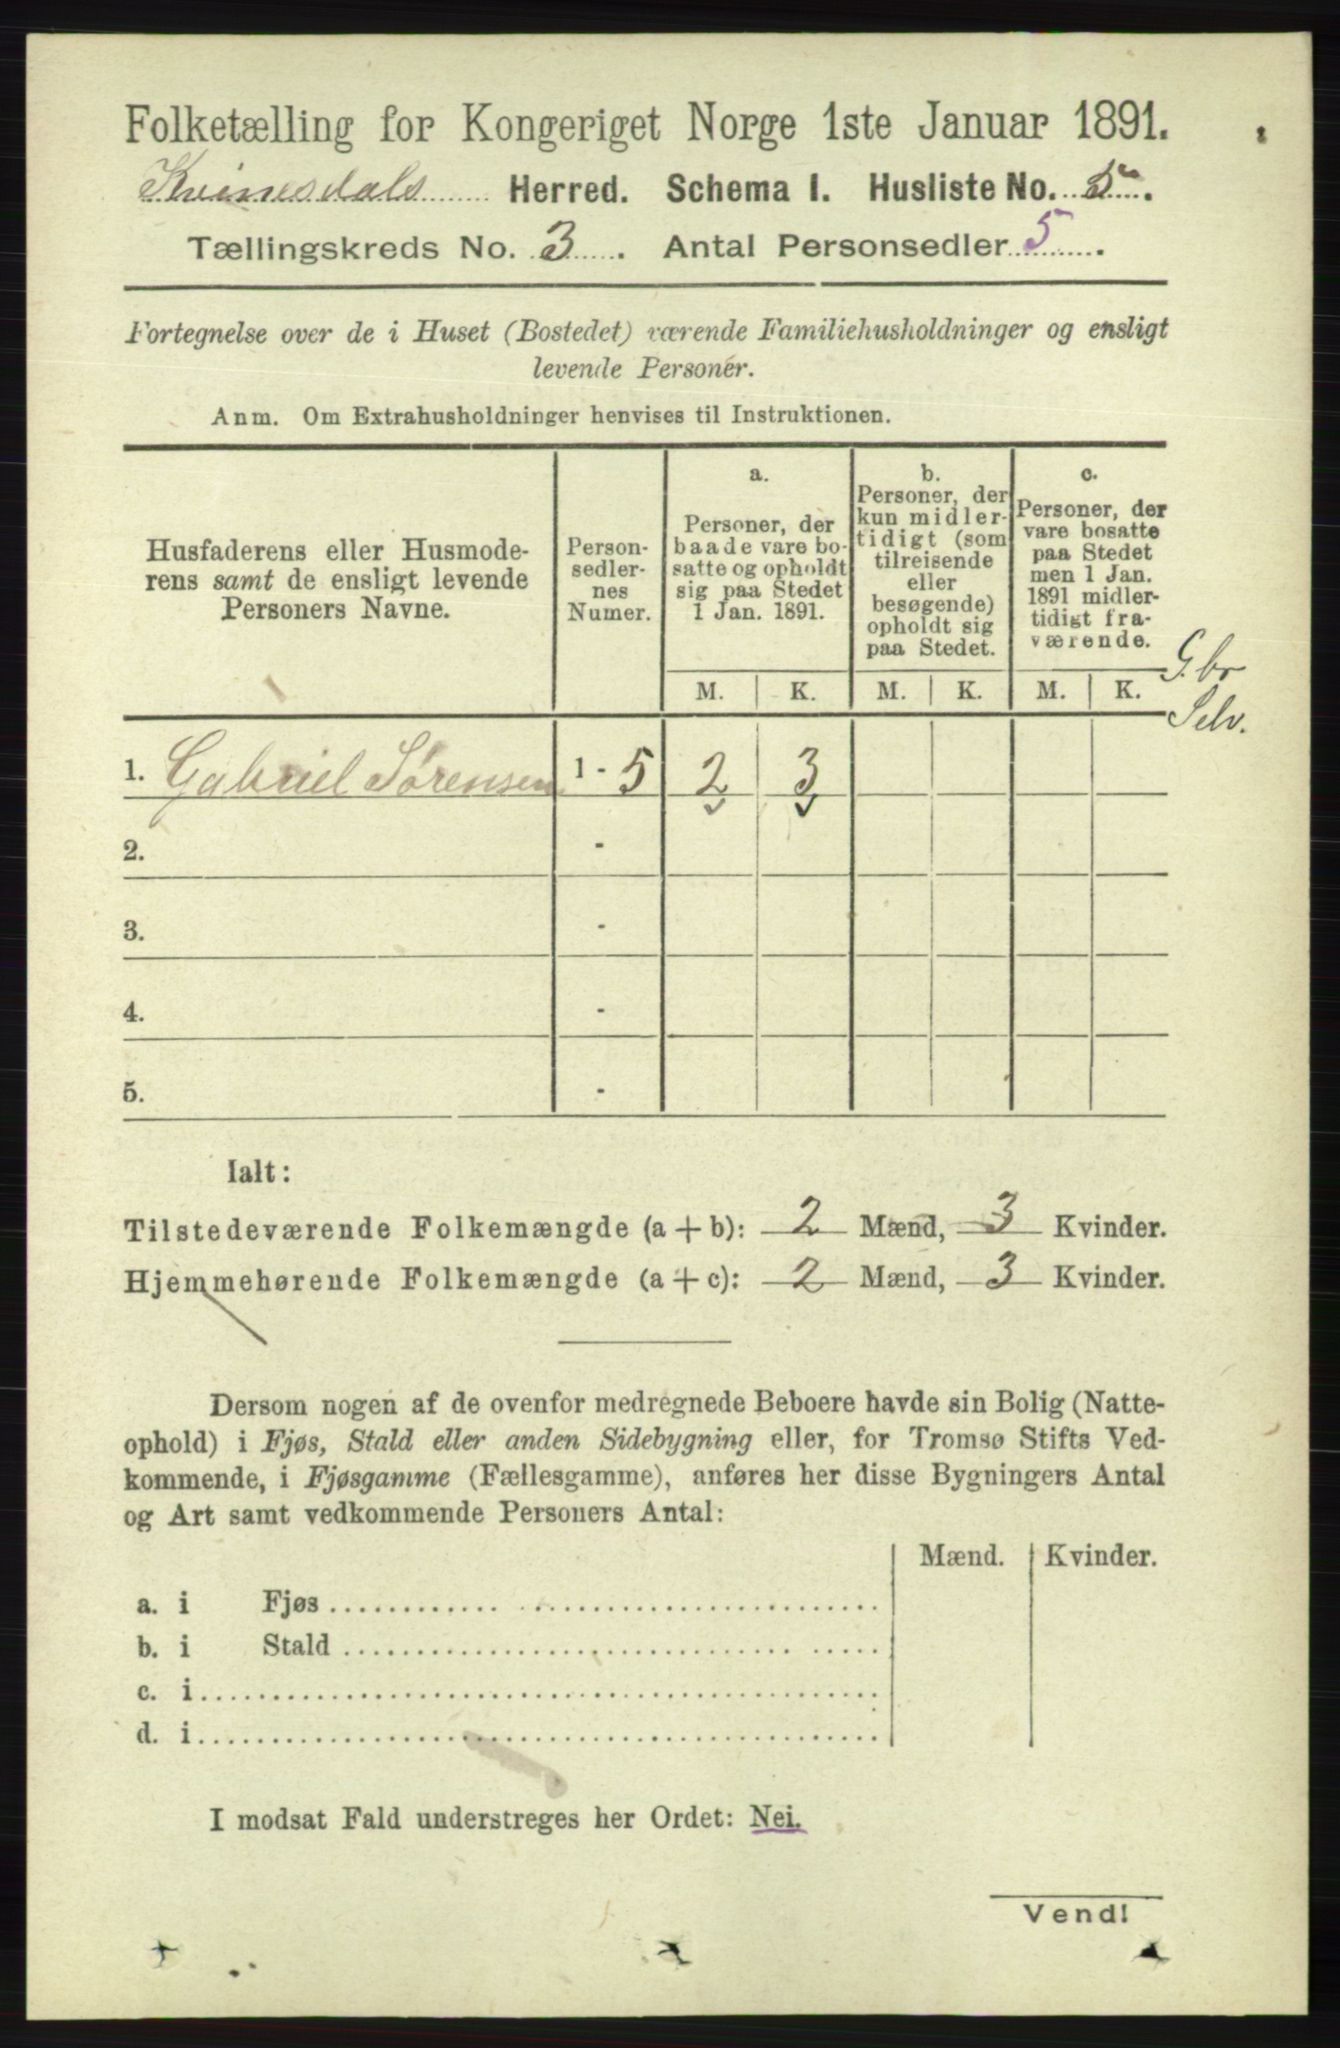 Folketælling for Kongeriget Norge 1ste Januar 1891.
Kvinesdals Herred. Schema I. Husliste No. 5.
Tællingskreds No. 3. Antal Personsedler 5.
Fortegnelse over de i Huset (Bostedet) værende Familiehusholdninger og ensligt
levende Personer.
Anm. Om Extrahusholdninger henvises til Instruktionen.
Husfaderens eller Husmode-
rens samt de ensligt levende
Personers Navne.
Person-
sedler-
nes
Numer.
a.
Personer, der
baade vare bo-
satte og opholdt
sig paa Stedet
1 Jan. 1891.
b.
Personer, der
kun midler-
tidigt (som
tilreisende
eller
besøgende)
opholdt sig
paa Stedet.
c.
Personer, der
vare bosatte
paa Stedet
men 1 Jan.
1891 midler-
tidigt fra-
værende.
G.br
Selv.
M. K. M. K. M. K.
1. Gabriel Sørensen 1 - 5 2 3
2. -
3. -
4. -
5. -
Ialt:
Tilstedeværende Folkemængde (a + b): 2 Mænd, 3 Kvinder.
Hjemmehørende Folkemængde (a + c): 2 Mænd, 3 Kvinder.
Dersom nogen af de ovenfor medregnede Beboere havde sin Bolig (Natte-
ophold) i Fjøs, Stald eller anden Sidebygning eller, for Tromsø Stifts Ved-
kommende, i Fjøsgamme (Fællesgamme), anføres her disse Bygningers Antal
og Art samt vedkommende Personers Antal:
Mænd. Kvinder.
a. i Fjøs
b. i Stald
c. i
d. i
I modsat Fald understreges her Ordet: Nei.
Vend!